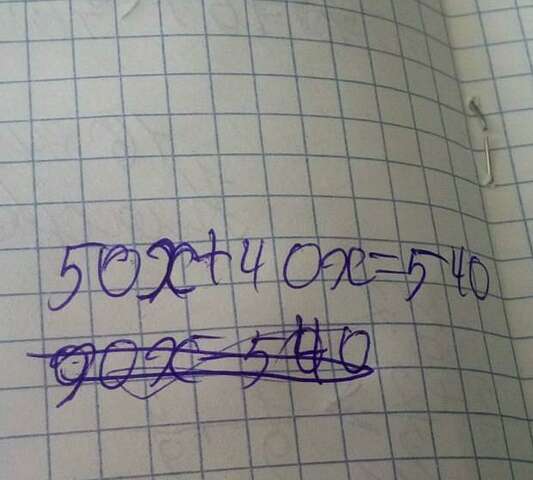 50x+40x=540
90x=540